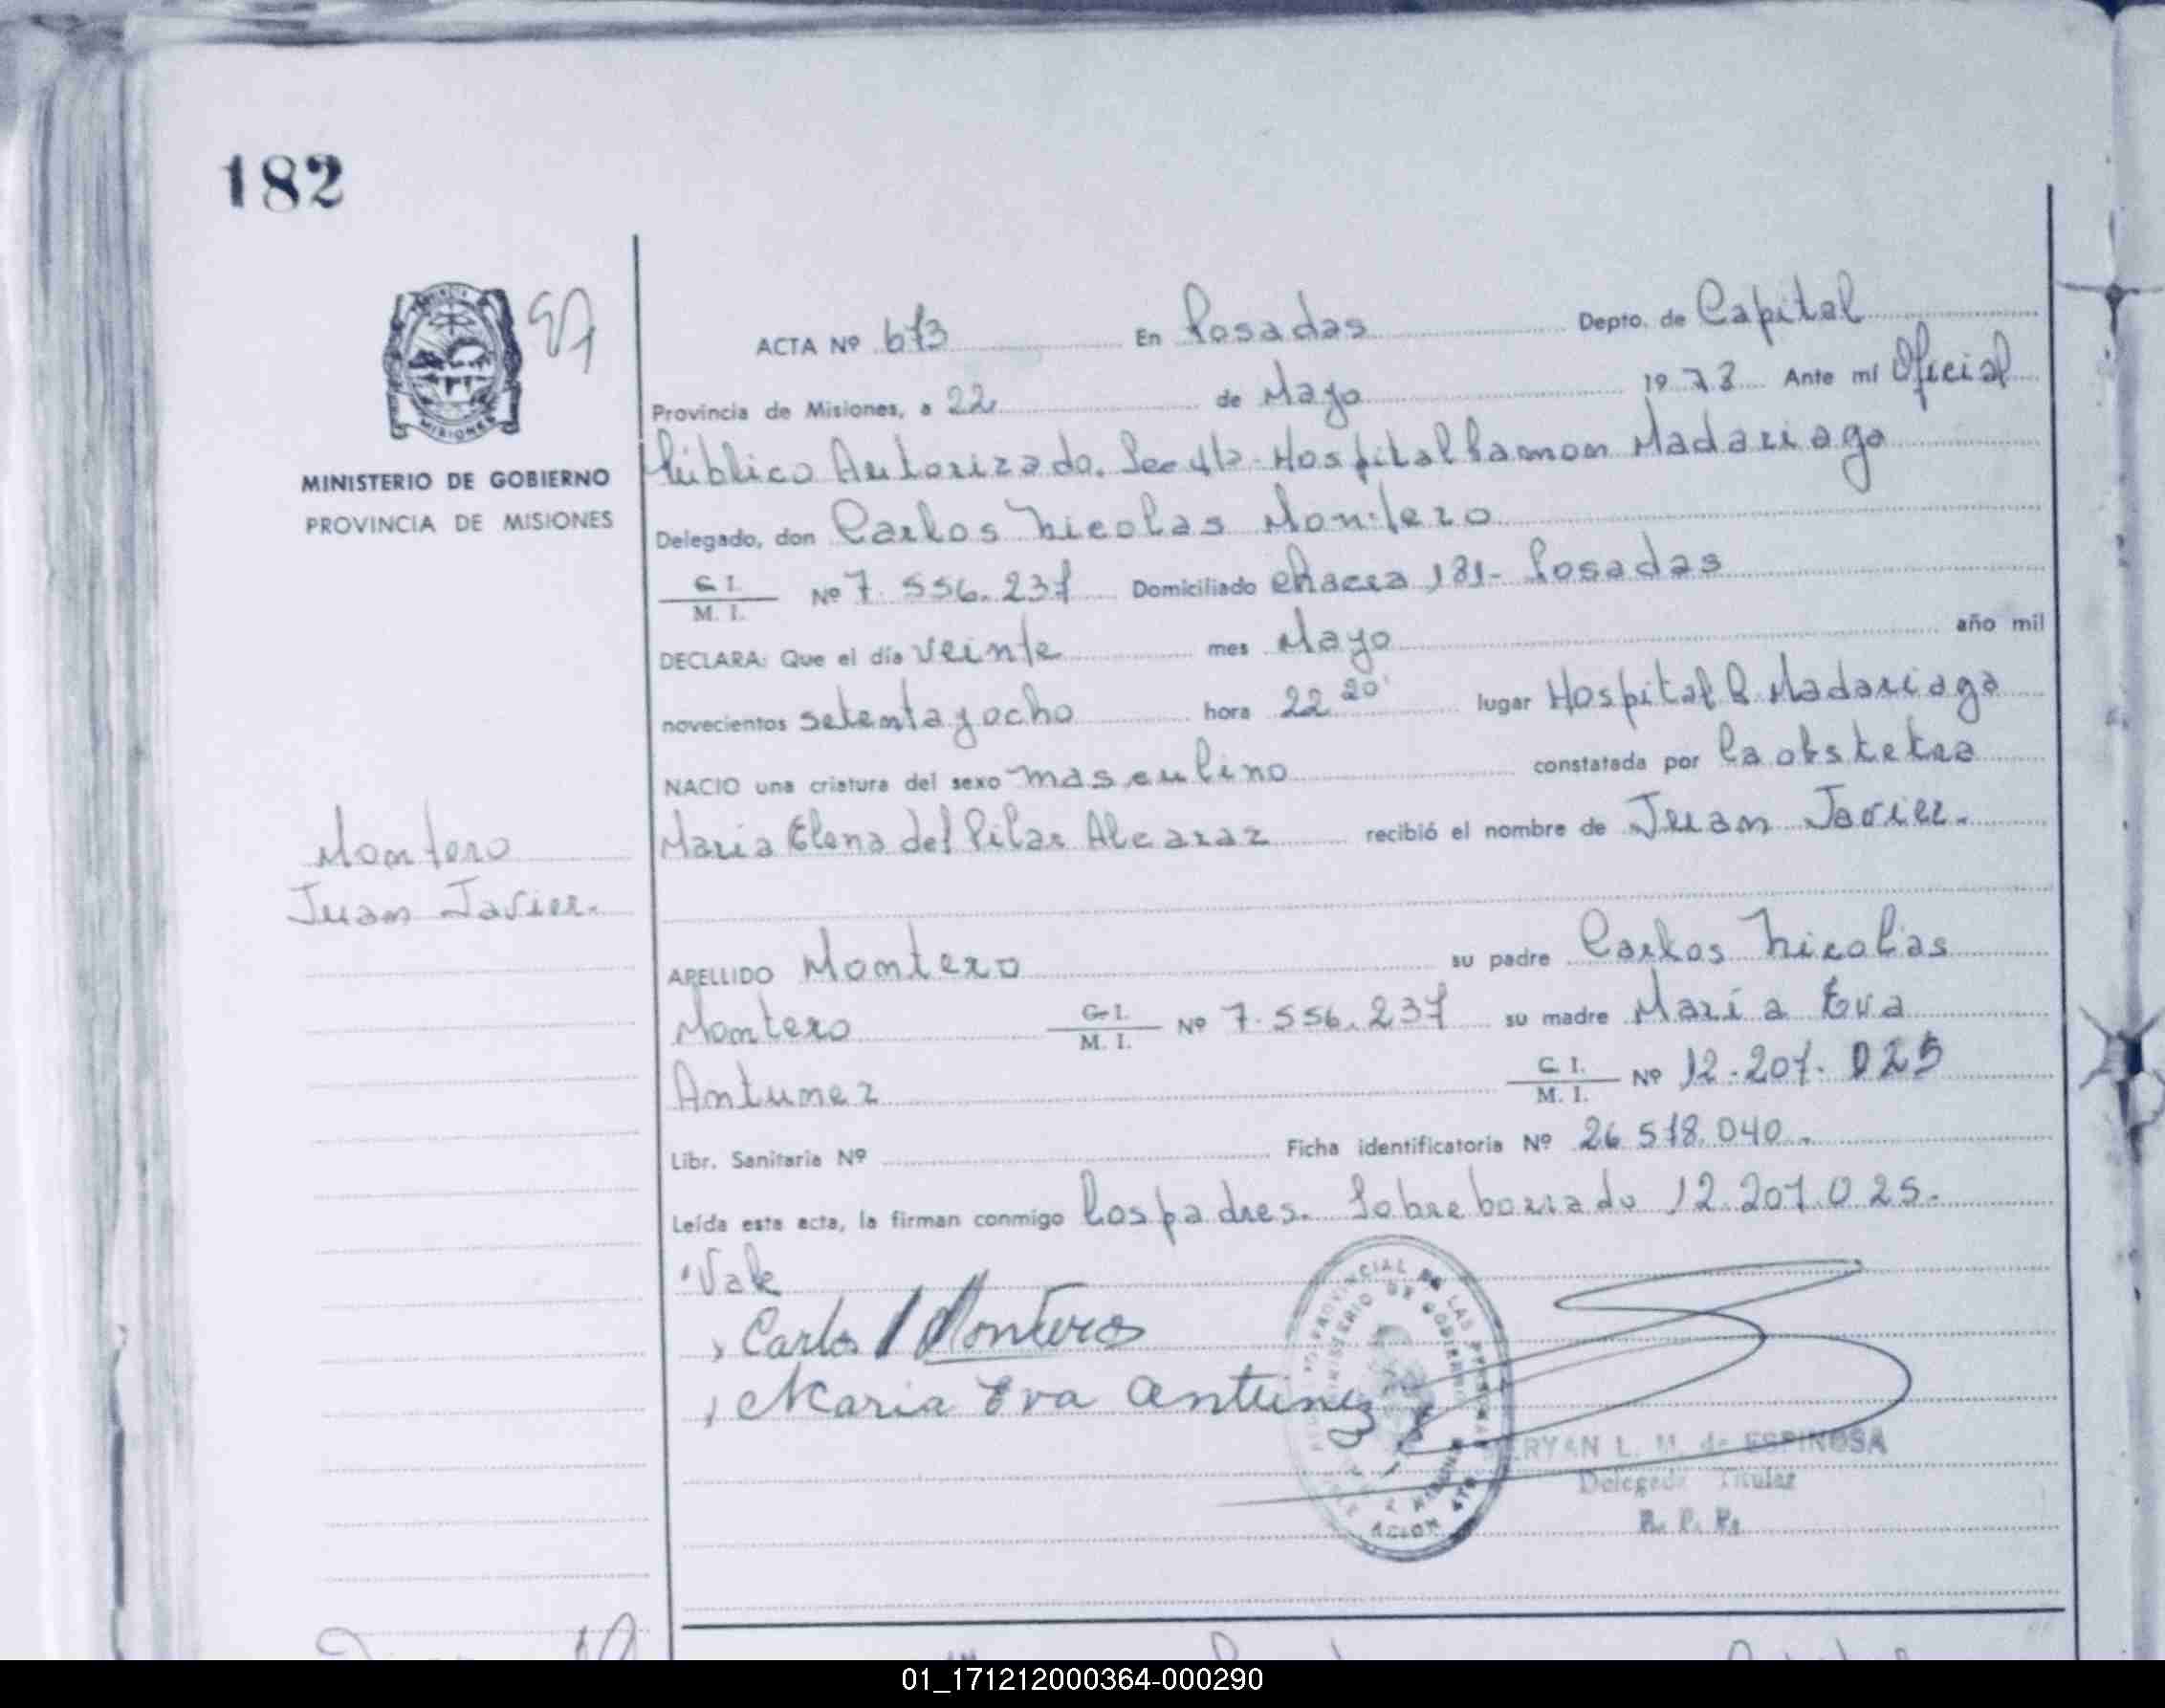 182
MISIONES
MINISTERIO DE GOBIERNO
PROVINCIA DE MISIONES
Montero
Juan Javier.
ACTA Nº 673 En Posadas Depto. de Capital
Provincia de Misiones, a 22 de Mayo 1978 Ante mí Oficial
Público Autorizado. Secc 4ta - Hospital Ramon Madariaga
Delegado, don Carlos Nicolas Montero
C. I. / M. I. Nº 7.556.237 Domiciliado chacra 181- Posadas
DECLARA: Que el día veinte mes Mayo año mil
novecientos setenta y ocho hora 22 20' lugar Hospital R. Madariaga
NACIO una criatura del sexo masculino constatada por la obstetra
María Elena del Pilar Alcaraz recibió el nombre de Juan Javier.
APELLIDO Montero su padre Carlos Nicolás
Montero C. I. / M. I. Nº 7.556.237 su madre María Eva
Antunez C. I. / M. I. Nº 12.207.025
Libr. Sanitaria Nº Ficha identificatoria Nº 26.578.040.
Leída esta acta, la firman conmigo los padres. Sobreborrado 12.207.025.
Vale
Carlos Montero
Maria Eva Antunez
ERYAN L. M. de ESPINOSA
Delegada Titular
R. P. P.
01_171212000364-000290